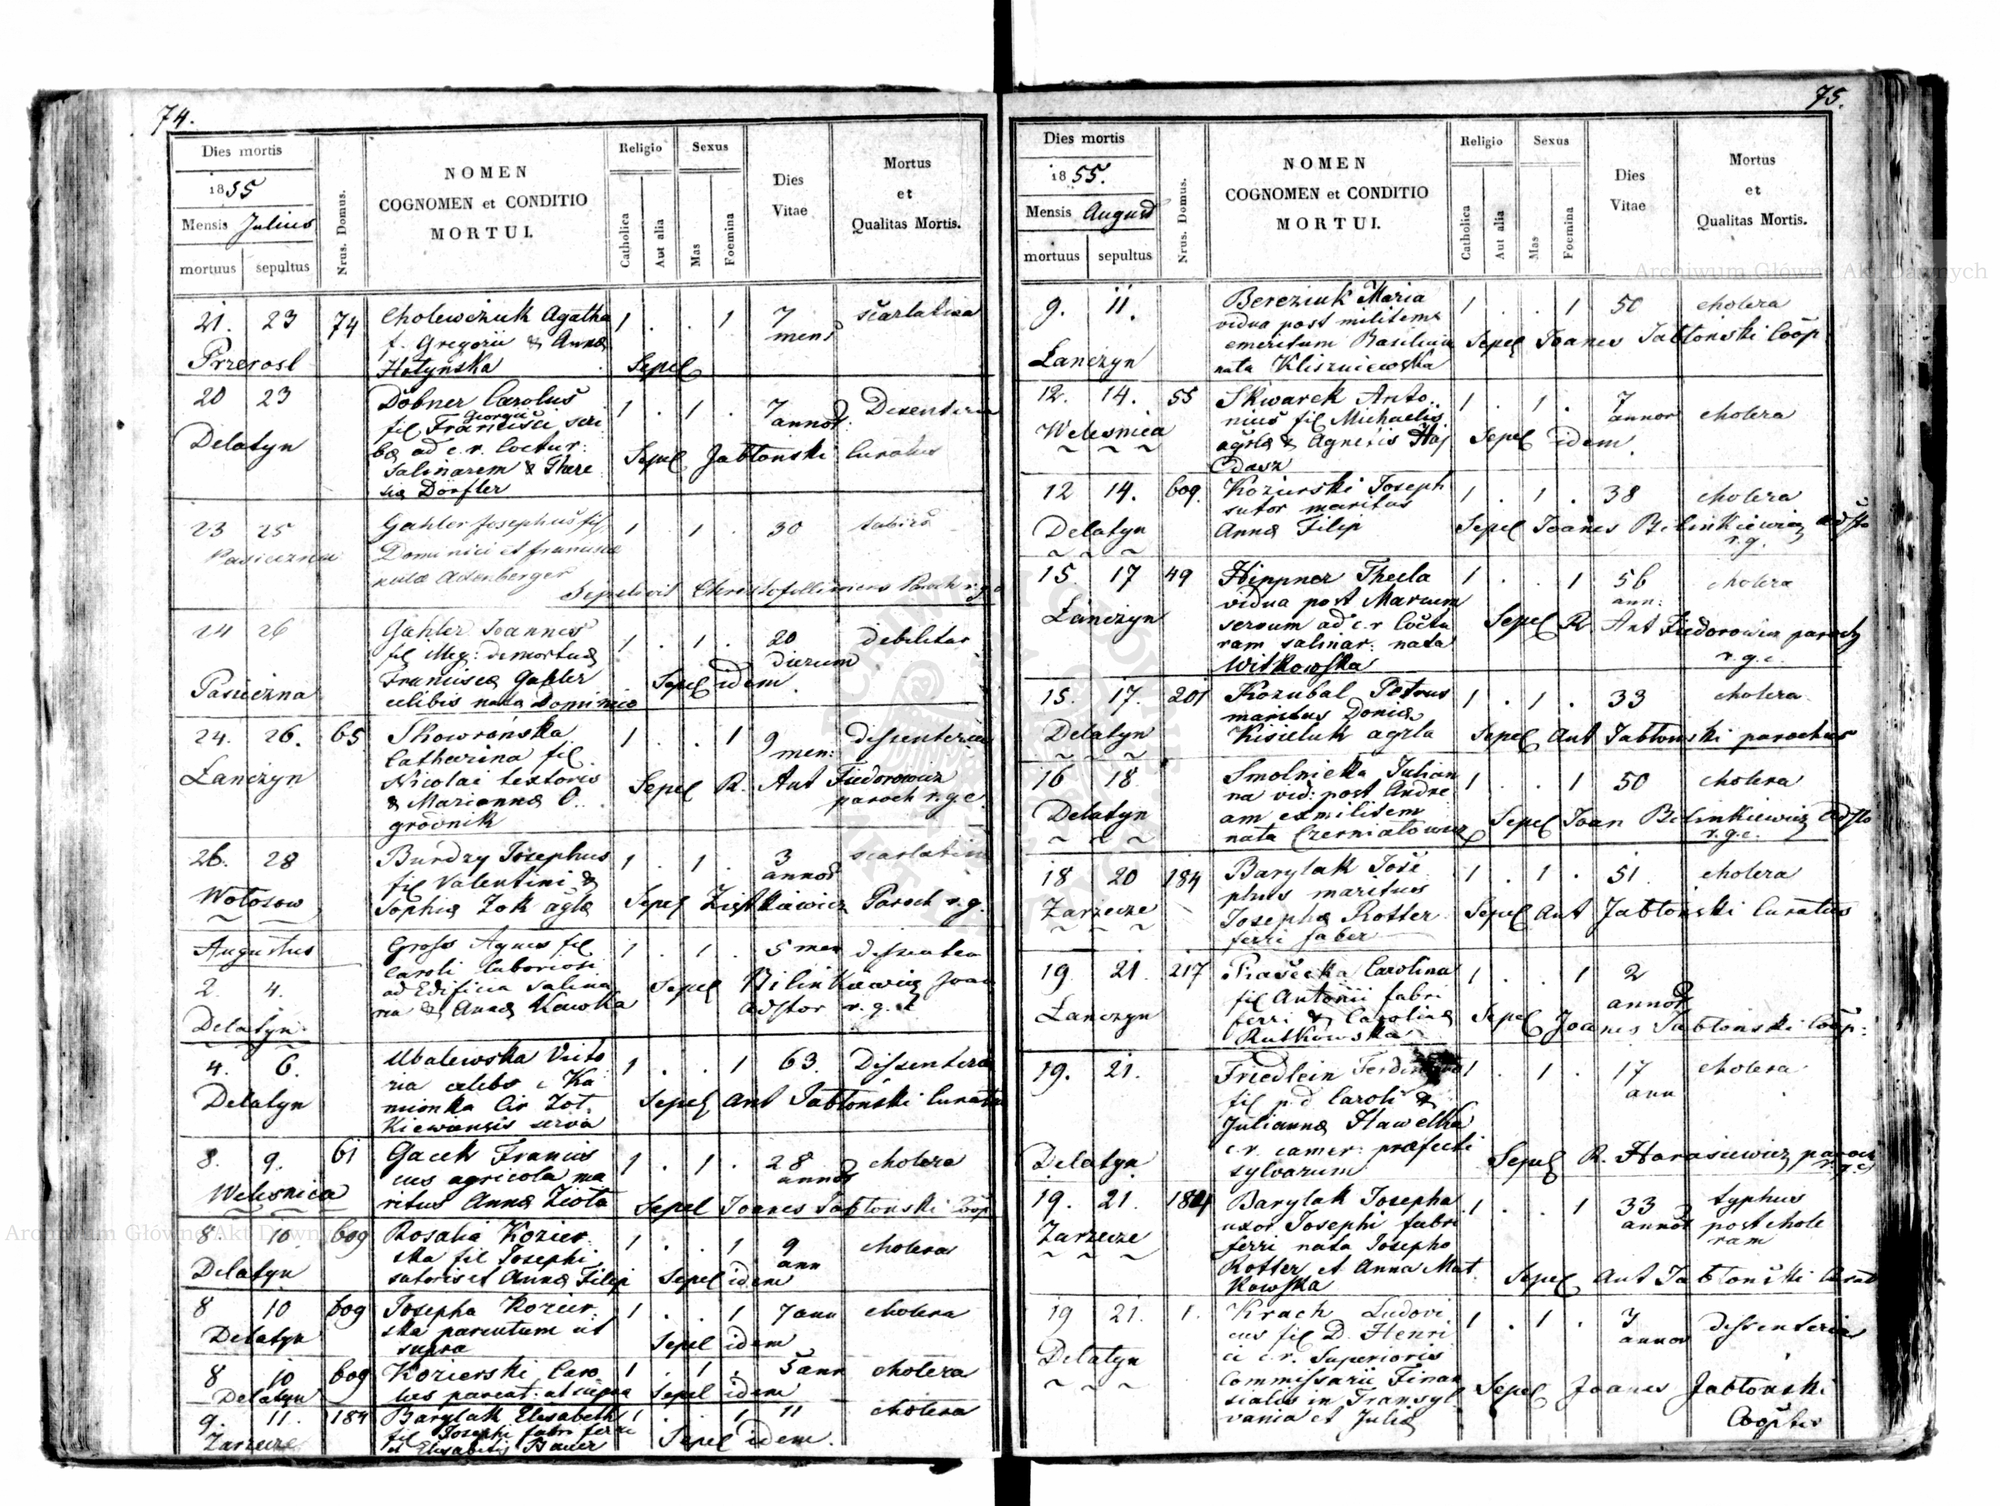 74.
Dies mortis
1855
Mensis Julius
mortuus sepultus
Nrus. Domus.
NOMEN
COGNOMEN et CONDITIO
MORTUI.
Religio
Catholica
Aut alia
Sexus
Mas
Foemina
Dies
Vitae
Mortus
et
Qualitas Mortis.
21. 23 74 Cholewczuk Agatha 1 . . 1 7 scarlatina
f. Gregorii & Annæ mens
Przerosl Hotynska Sepel
20 23 Dobner Carolus 1 . 1 . 7 Desenteria
Georgii
fil Francisci scri annor.
Delatyn bæ ad c.r. Coctur: Sepel Jabłonski Curatus
Salinarem & There
sia Dörfler
23 25 Gahler Josephus fil 1 1 . 30
Pasieczna Dominici et francisca
natæ
Sepelivit Paroch r.g.c
24 26 Gahler Joannes 1 . 1 . 20 debilitas
fil dierum
Pasieczna Francisca Gahler Sepel idem
celibis nata Dominico
24. 26. 65 Skowrońska 1 . . 1 9 dissenteria
Catharina fil men:
Łanczyn Nicolai textoris Sepel R. Ant Fiedorowicz
& Mariannæ O. paroch r.g.c.
grodnik
26. 28 Burdzy Josephus 1 . 1 . 3 scarlatina
fil Valentini & annor
Wołosow Sophiæ Zok agłæ Sepel Ziętkiewicz Paroch r.g.
Augustus Gross Agnes fil 1 . 1 . 5 men dissenten
Caroli laboriosi
2. 4. ad Edificia Salina Sepel Bilinkiewicz Joan
ria & Annæ Kawka adstor r.g.c
Delatyn
4. 6. Ubalewska Victo 1 . . 1 63. Dissenteria
ria celebs e Ka
Delatyn mionka Cir Zoł Sepel Ant Jabłoński Curatus
kiewiensis serva
8. 9. 61 Gacek Francis 1 . 1 . 28 cholera
cus agricola ma annor
Welesnica ritus Annæ Ziota Sepel Joanes Jabłonski Coop
8 10. 609 Rosalia Kozier 1 . . 1 9 cholera
ska fil Josephi ann
Delatyn sutoris et Annæ Filip Sepel idem
8 10 609 Josepha Kozier 1 . . 1 7 ann cholera
ska parentum ut
Delatyn supra Sepel idem
8 10 609 Kozierski Caro 1 . 1 . 5 ann cholera
Delatyn lus parent: ut supra Sepel idem
9. 11. 184 Barylak Elisabeth 1 . . 1 11 cholera
fil Josephi fabri ferri
Zarzecze et Elisabetis Bauer Sepel idem.
75.
Dies mortis
1855.
Mensis August
mortuus sepultus
Nrus. Domus.
NOMEN
COGNOMEN et CONDITIO
MORTUI.
Religio
Catholica
Aut alia
Sexus
Mas
Foemina
Dies
Vitae
Mortus
et
Qualitas Mortis.
9. 11. Bereziuk Maria 1 . . 1 50 cholera
vidua post militem
emeritum Basilium Sepel Joanes Jabłonski Coop
Łanczyn nata Kliszniewska
12. 14. 55 Skwarek Anto 1 . 1 . 7 cholera
nius fil Michaelis annor
Welesnica agłæ & Agnetis Haj Sepel idem.
dasz
12 14. 609. Kozierski Joseph 1 . 1 . 38 cholera
sutor maritus
Delatyn Annæ Filip Sepel Joanes Belinkiewicz adsto
r.g.
15. 17 49 Hippner Thecla 1 . . 1 56 cholera
vidua post Marcum ann:
Łanczyn servum ad c.r Coctu Sepel R Ant Fiedorowicz paroch
ram salinar: nata r.g.c.
Witkowska
15. 17. 201 Kozubal Petrus 1 . 1 . 33 cholera
maritus Doniæ
Delatyn Kisieluk agrła Sepel Ant Jabłonski parochus
16 18 Smolnicka Julian 1 . . 1 50 cholera
na vid: post Andre
Delatyn am exmilitem Sepel Joan Belinkiewicz adsto
nata Czerniatowicz r.g.c.
18 20 184 Barylak Jose 1 . 1 . 51 cholera
phus maritus
Zarzecze Josephæ Rotter Sepel Ant Jabłoński Curatus
ferri faber
19. 21. 217 Piasecka Carolina 1 . . 1 2
fil Antonii fabri annor
Łanczyn ferri & Carolinæ Sepel Joanes Jabłoński Coop:
Rutkowska
19. 21. Friedlein Ferdinand 1 . 1 . 17 cholera
fil p.d Caroli & ann
Juliannæ Hawelka
c.r. camer: præfecti
Delatyn sylvarum Sepel R. Harasiewicz paroch
r.g.c
19. 21. 184 Barylak Josepha 1 . . 1 33 typhus
uxor Josephi fabri annor post chole
Zarzecze ferri nata Josepho ram
Rotter et Anna Mat Sepel Ant Jabłoński Curat
kowska
19 21. 1. Krach Ludovi 1 . 1 . 7 dissenteria
cus fil D. Henri annor
Delatyn ci c.r. Superioris
Commissarii Finan Sepel Joanes Jabłoński
cialis in Transyl Cooptor
vania et Juliæ
Archiwum Główne Akt Dawnych
Archiwum Główne Akt Dawnych